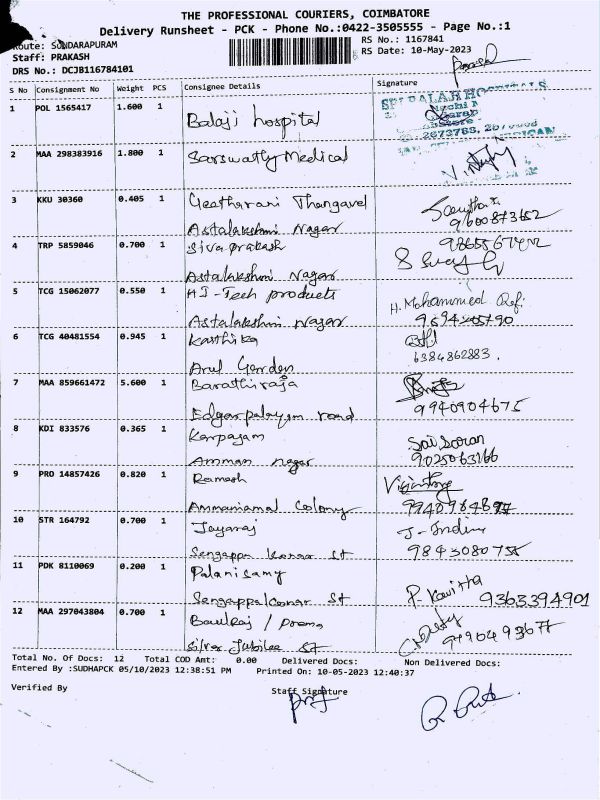 THE PROFESSIONAL COURIERS, COIMBATORE
Delivery Runsheet - PCK - Phone No.:0422-3505555 - Page No.:1
Route: SUNDARAPURAM RS No.: 1167841
Staff: PRAKASH RS Date: 10-May-2023
DRS No.: DCJB116784101
S No Consignment No Weight PCS Consignee Details Signature
1 POL 1565417 1.600 1 Balaji hospital
2 MAA 298383916 1.800 1 Sarswathy Medical
3 KKU 30360 0.405 1 Geetharani Thangavel
Astalakshmi Nagar 9600873152
4 TRP 5859046 0.700 1 Siva prakash
Astalakshmi Nagar
5 TCG 15062077 0.550 1 HI-Tech products H. Mohammed
Astalakshmi Nagar
6 TCG 40481554 0.945 1 Karthika
Arul Garden 6384862883.
7 MAA 859661472 5.600 1 Barathiraja
Edgarpalayam road 9940904675
8 KDI 833576 0.365 1 Karpagam
Amman nagar 9025063166
9 PRO 14857426 0.820 1 Ramesh
Ammaniamal Colony
10 STR 164792 0.700 1 Jayaraj
Sengappa St
11 PDK 8110069 0.200 1 Palanisamy P. Kavitha
Sengappakonar St 9363394901
12 MAA 297043804 0.700 1
Silver Jubilee ST
Total No. Of Docs: 12 Total COD Amt: 0.00 Delivered Docs: Non Delivered Docs:
Entered By :SUDHAPCK 05/10/2023 12:38:51 PM Printed On: 10-05-2023 12:40:37
Verified By Staff Signature